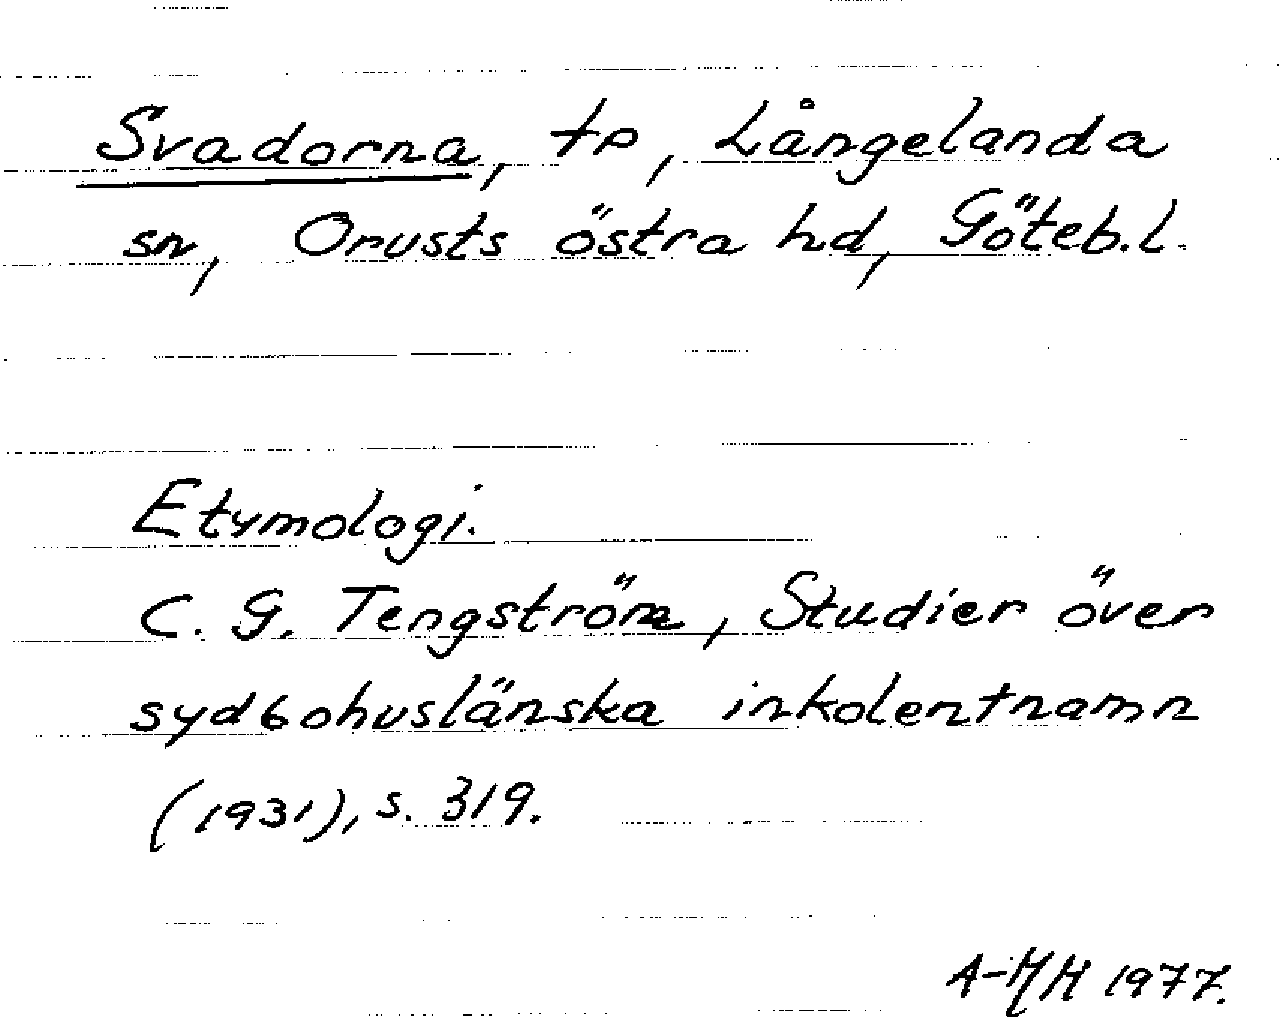 Svadorna, tp, Långelanda
sn, Orusts östra hd, Göteb.l.
Etymologi.
C. G. Tengström, Studier över
sydbohuslänska inkolentnamn
(1931), s. 319.
A-MH 1977.